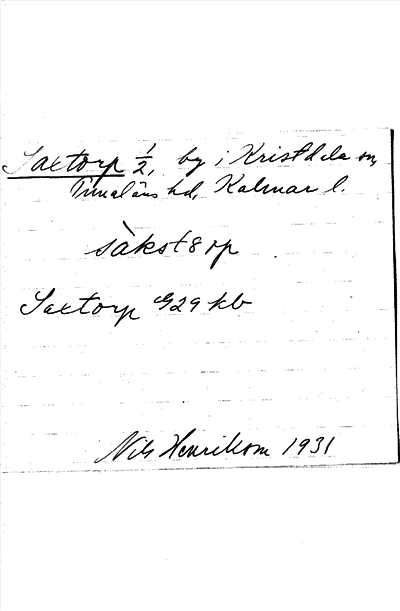 Saxtorp 1/2, by i Kristdala sn,
Tunaläns hd, Kalmar l.
sàkst8rp
Saxtorp G29 kb
Nils Henrikson 1931